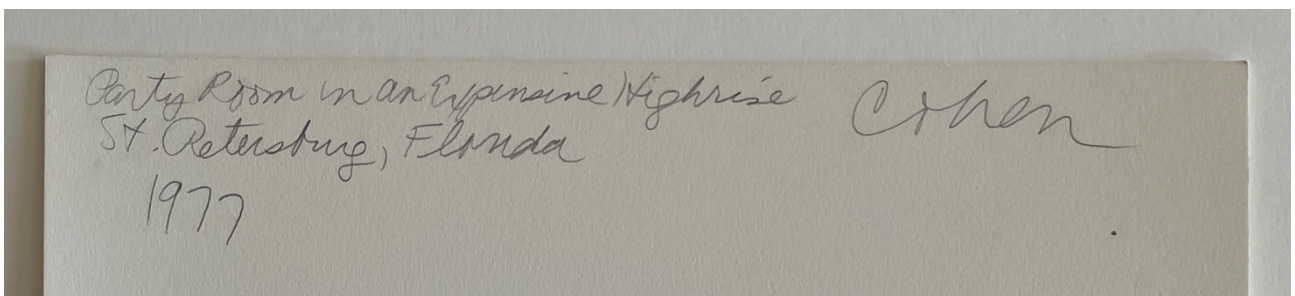 Party Room in an Expensive Highrise Cohen
St. Petersburg, Florida
1977